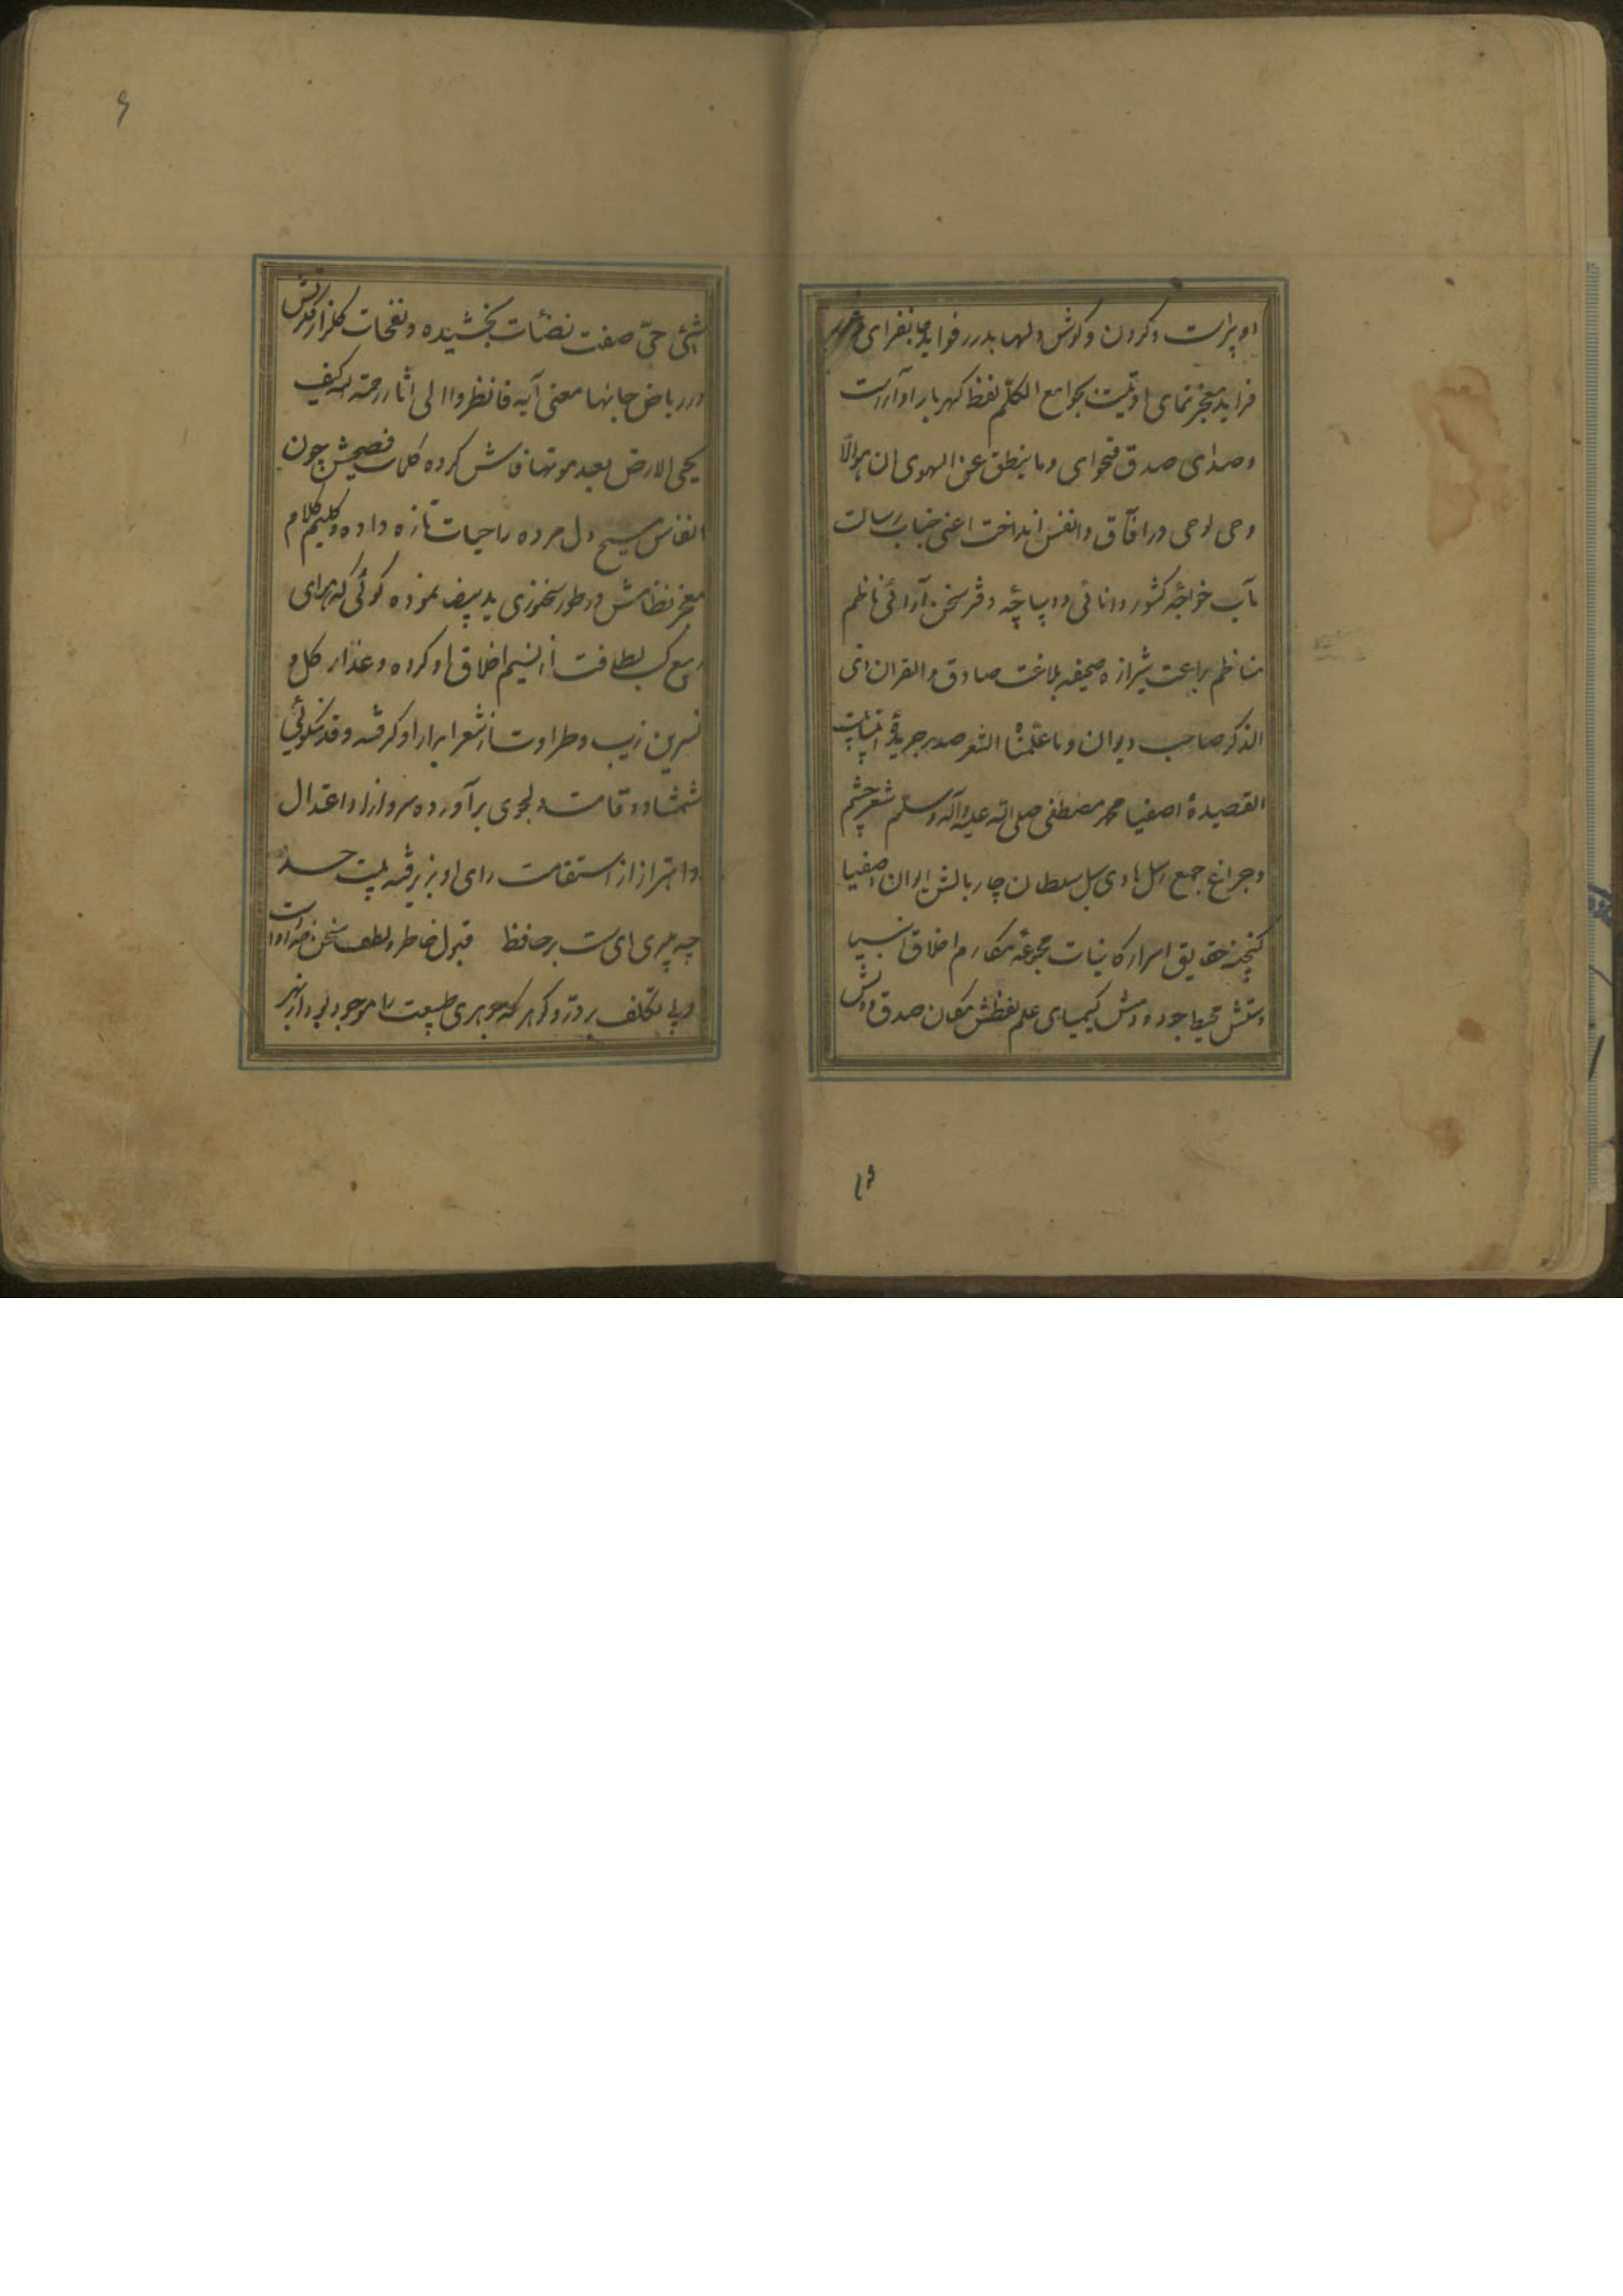 او پیراست و گردن و گوش دلها بدرر فواید جانفزای و غرر
فراید معجز نمای اوتیت بجوامع الکلم لفظ گهربار او آراست
و صدای صدق فحوای و ما ینطق عن الهوی ان هو الا
وحی یوحی در آفاق و انفس انداخت اعنی جناب رسالت
مآب خواجه کشور دانائی و دیباچه دفتر سخن آرائی ناظم
مناظم براعت شیرازه صحیفه بلاغت صادق والقران ذی
الذکر صاحب دیوان و ما علمناه الشعر صدر جریده انبیا بیت
القصیده اصفیا محمد مصطفی صلی الله علیه و آله و سلم شعر چشم
و چراغ جمع رسل هادی سبل سلطان چاربالش ایوان اصفیا
گنجینه حقایق اسرار کاینات مجموعه مکارم اخلاق انبیا
دستش محیط جود و دمش کیمیای علم لفظش مکان صدق و دلش
و ؟
۶
شیئ حی صفت نضئات بخشیده و نفحات گلزار قدس
در ریاض جانها معنی آیه فانظروا الی اثار رحمة الله کیف
یحی الارض بعد موتها فاش کرده کلمات فصیحش چون
انفاس مسیح دل مرده را حیات تازه داده و کلیم کلام
معجز نظامش در طور سخنوری ید بیضا نموده گوئی که هوای
ربیع کسب لطافت از نسیم اخلاق او کرده و عذار گل و
نسرین زیب و طراوت از شعر ابرار او گرفته و قد نکوئی
شمشاد و قامت دلجوی برآورده سرو آزاد اعتدال
و اهتزاز از استقامت رای او پذیرفته بیت حسد
چه میبری ای سست بر حافظ قبول خاطر و لطف سخن خداداد است
و بی تکلف هر در و گوهر که جوهری طبیعت را موجود بود از بهر